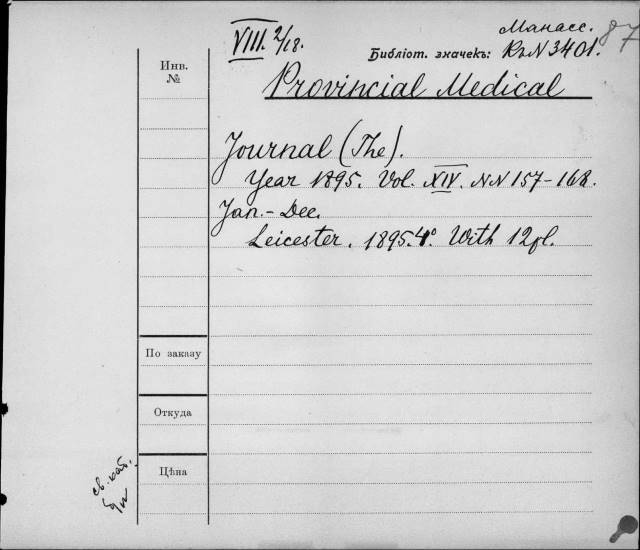 Манасс. 87
VIII. 2/18.
Библіот. значекъ: Къ N 3401.
Инв.
№
Provincial Medical
Journal (The).
Year 1895. Vol. XIV. NN 157-168.
Jan.- Dec.
Leicester. 1895. 4° With 12 pl.
По заказу
Откуда
Цѣна
св. каб.